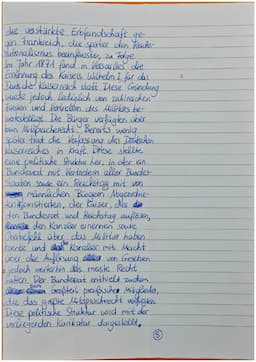 die verstärkte Erbfeindschaft ge-
gen Frankreich, die später den Reichs-
nationalismus beeinflusste, zu Folge.
Im Jahr 1871 fand in Versailles die
Ernennung des Kaisers Wilhelm I für das
Deutsche Kaiserreich statt. Diese Gründung
wurde jedoch lediglich von zahlreichen
Fürsten und Vertretern des Militärs be-
werkstelligt. Die Bürger verfügten über
kein Mitspracherecht. Bereits wenig
später trat die Verfassung des Deutschen
Kaiserreiches in Kraft. Diese stellte
eine politische Struktur her, in der ein
Bundesrat mit Vertretern aller Bundes-
staaten sowie ein Reichstag mit von
männlichen Bürgern
der Kaiser, der
den Bundesrat und Reichstag auflösen,
den Kanzler ernennen sowie
Oberbefehl über das Militär haben
konnte und Kanzler mit Macht
über die Ausführung von Gesetzen
jedoch weiterhin das meiste Recht
hatten. Der Bundesrat enthielt zudem
Großteil preußische Mitglieder,
die das größte Mitspracherecht verfügten.
Diese politische Struktur wird mit der
vorliegenden Karikatur dargestellt.
5